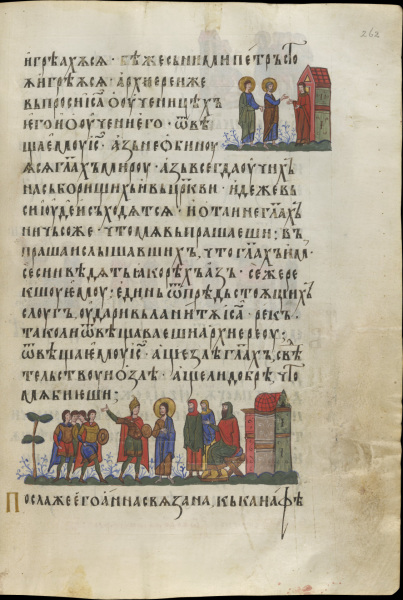 262
и҆грѣꙗ́хѫсѧ · бѣ́жесъними петръ стоѧ
и҆грѣ́ѧсѧ · а҆рхиереи́же
въпросиі҃са ѡ҆оу҆ченицѣ́хъ
е҆гои҆ѡ҆оу҆че́нїего · ѿвѣ
ща́е҆моуі҃с · а҆́зъне ѡ҆бинꙋ
ѧсѧгл҃ахъми́роу · а҆́зъвсегда оу҆чи́хъ
насъбо́рищихъ и҆въцр҃кви · и҆де́жевь
си і҆ю҆де́исъхо́дѧтсѧ · и҆ѡ҆таинегл҃ахъ
ничьсо́же · что́мѧвъпраша́еши : въ
праша́и слы́шавшихъ, что́гл҃ахъи҆м ·
се́сиивѣ́дѧтъꙗ҆́жерѣ́хъа҆́зъ · се́жере
кшоуе҆моу ; е҆ди́нь ѿпрѣ́дъстоѧщихъ
слоу́гъ, оу҆да́ривъла́нитѫі҃са · ре́къ ·
та́коли ѿвѣщава́еши а҆рхиереоу ;
ѿвѣща́е҆моуі҃с · а҆́щеѕлѣ́гл҃ахъ, свѣдѣ
те́льствоуи ѡ҆ѕлѣ̀ · а҆́щелидо́брѣ, что
мѧбїе́ши ;
Посла́жеего а҆́ннасвѧ́зана, къкаиа́фѣ